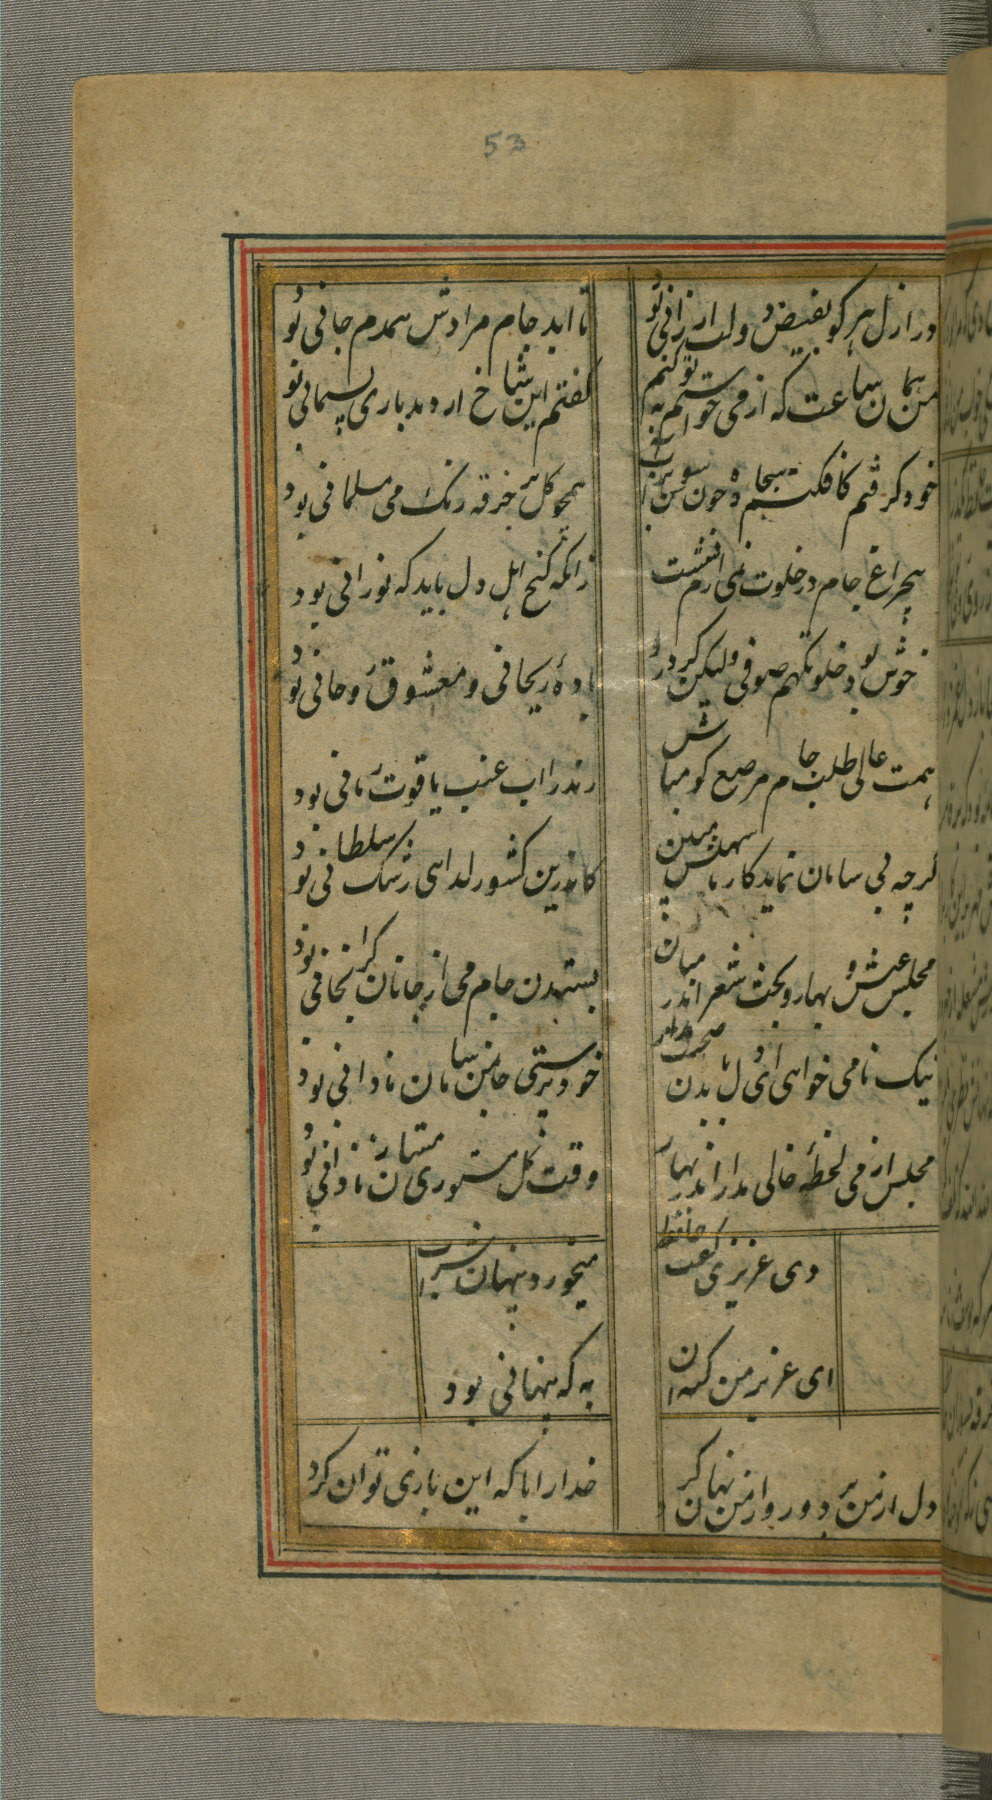 53
در ازل هر کو بفیض دولت ارزانی بود
تا ابد جام مرادش همدم جانی بود
من همان ساعت که از می خواستم توبه کنم
گفتم این شاخ ار دهد باری پشیمانی بود
خود گرفتم کافکنم سجاده چون سوسن
همچو گل بر خرقه رنگ می مسلمانی بود
بیچراغ جام در خلوت نمی ارم نشست
زانکه کنج اهل دل باید که نورانی بود
خوش بود خلوتگهم صوفی ولیکن گر درو
بادهٔ ریحانی و معشوق روحانی بود
همت عالی طلب جام مرصع کو مباش
رند را اب عنب یاقوت رمانی بود
گرچه بی سامان نماید کار ما سهلش مبین
کاندرین کشور گدایی رشک سلطانی بود
مجلس عیش و بهار و بحث شعر اندر میان
بستدن جام می از جانان گرانجانی بود
نیک نامی خواهی ای دل با بدن صحبت مدار
خود پرستی جان من سامان نادانی بود
مجلس از می لحظهٔ خالی مدار اندر بهار
وقت گل مستوری مستان ز نادانی بود
دی عزیزی گفت حافظ
میخورد پنهان شراب
ای عزیز من گنه ان
به که پنهانی بود
دل از من برد و روی از من نهان کرد
خدا را با که این بازی توان کرد